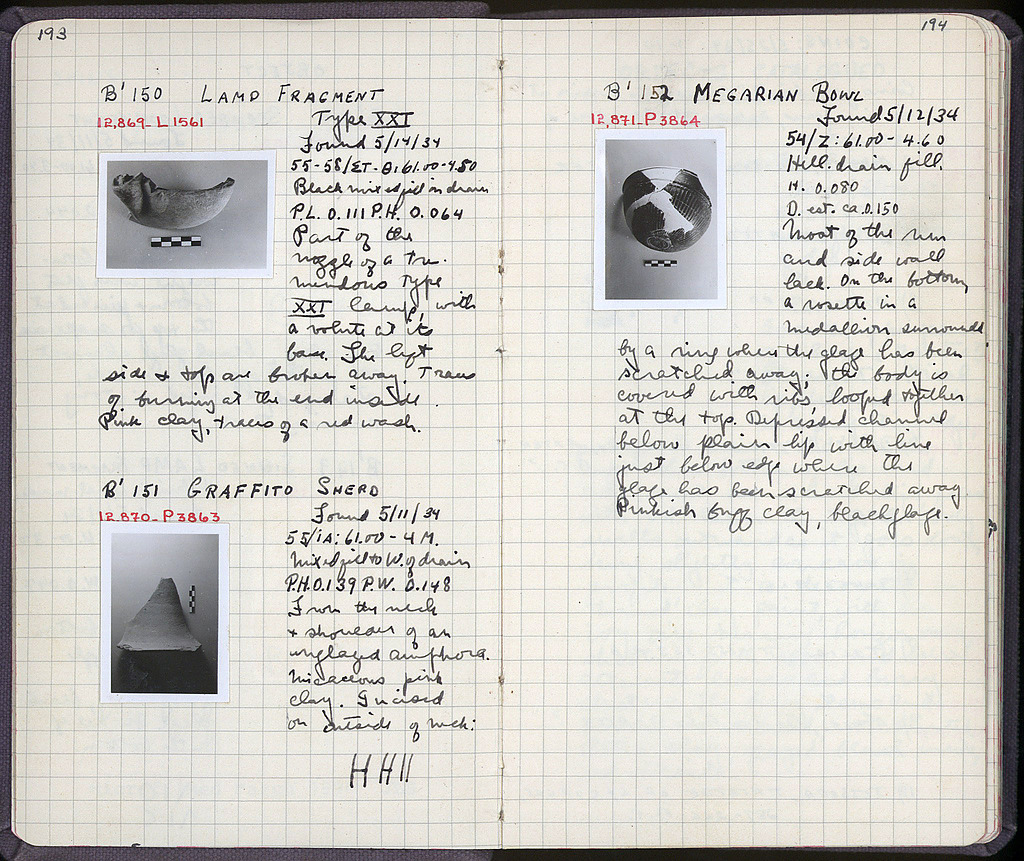 193
B' 150 LAMP FRAGMENT
12,869-L 1561
Type XXI
Found 5/14/34
55-58/ΣΤ-Θ:61.00-4.50
Black mixed fill in drain
P.L. 0.111 P.H. 0.064
Part of the
nozzle of a tre-
mendous Type
XXI lamp, with
a volute at its
base. The left
side & top are broken away. Traces
of burning at the end inside.
Pink clay, traces of a red wash.
B' 151 GRAFFITO SHERD
12,870-P 3863
Found 5/11/34
55/ΙΑ:61.00-4M.
Mixed fill to W. of drain
P.H.0.139 P.W. 0.148
From the neck
& shoulder of an
unglazed amphora.
Micaceous pink
clay. Incised
on outside of neck:
HHII
194
B' 152 MEGARIAN BOWL
12,871-P 3864
Found 5/12/34
54/Ζ:61.00-4.60
Hell. drain fill.
H. 0.080
D. est. ca. 0.150
Most of the rim
and side wall
lack. On the bottom,
a rosette in a
medallion surrounded
by a ring where the glaze has been
scratched away; the body is
covered with ribs looped together
at the top. Depressed channel
below plain lip with line
just below edge where the
glaze has been scratched away.
Pinkish buff clay, black glaze.